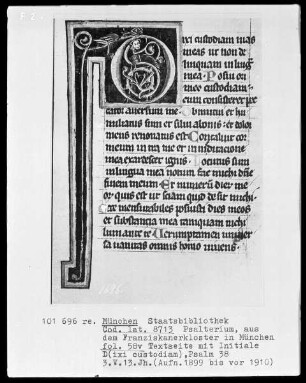 ixi custodiam uias
meas ut non de
linquam in lingua
mea Posui ori
meo custodiam
cum consisteret pec
cator aduersum me Obmutui et hu
miliatus sum et silui a bonis et dolor
meus renouatus est Concaluit cor
meum in me et in meditatione
mea exardescet ignis Locutus sum
in lingua mea notum fac michi dñe
finem meum Et numerum dierum me
or quis est ut sciam quid desit michi
ce mensurabiles posuisti dies meos
et substantia mea tamquam nichi
lum ante te Uerumptamen uniuer
sa uanitas omnis homo uiuens
101 696 re. München Staatsbibliothek
Cod. lat. 8713 Psalterium, aus
dem Franziskanerkloster in München
fol. 58v Textseite mit Initiale
D(ixi custodiam),Psalm 38
3.V.13.Jh.(Aufn.1899 bis vor 1910)